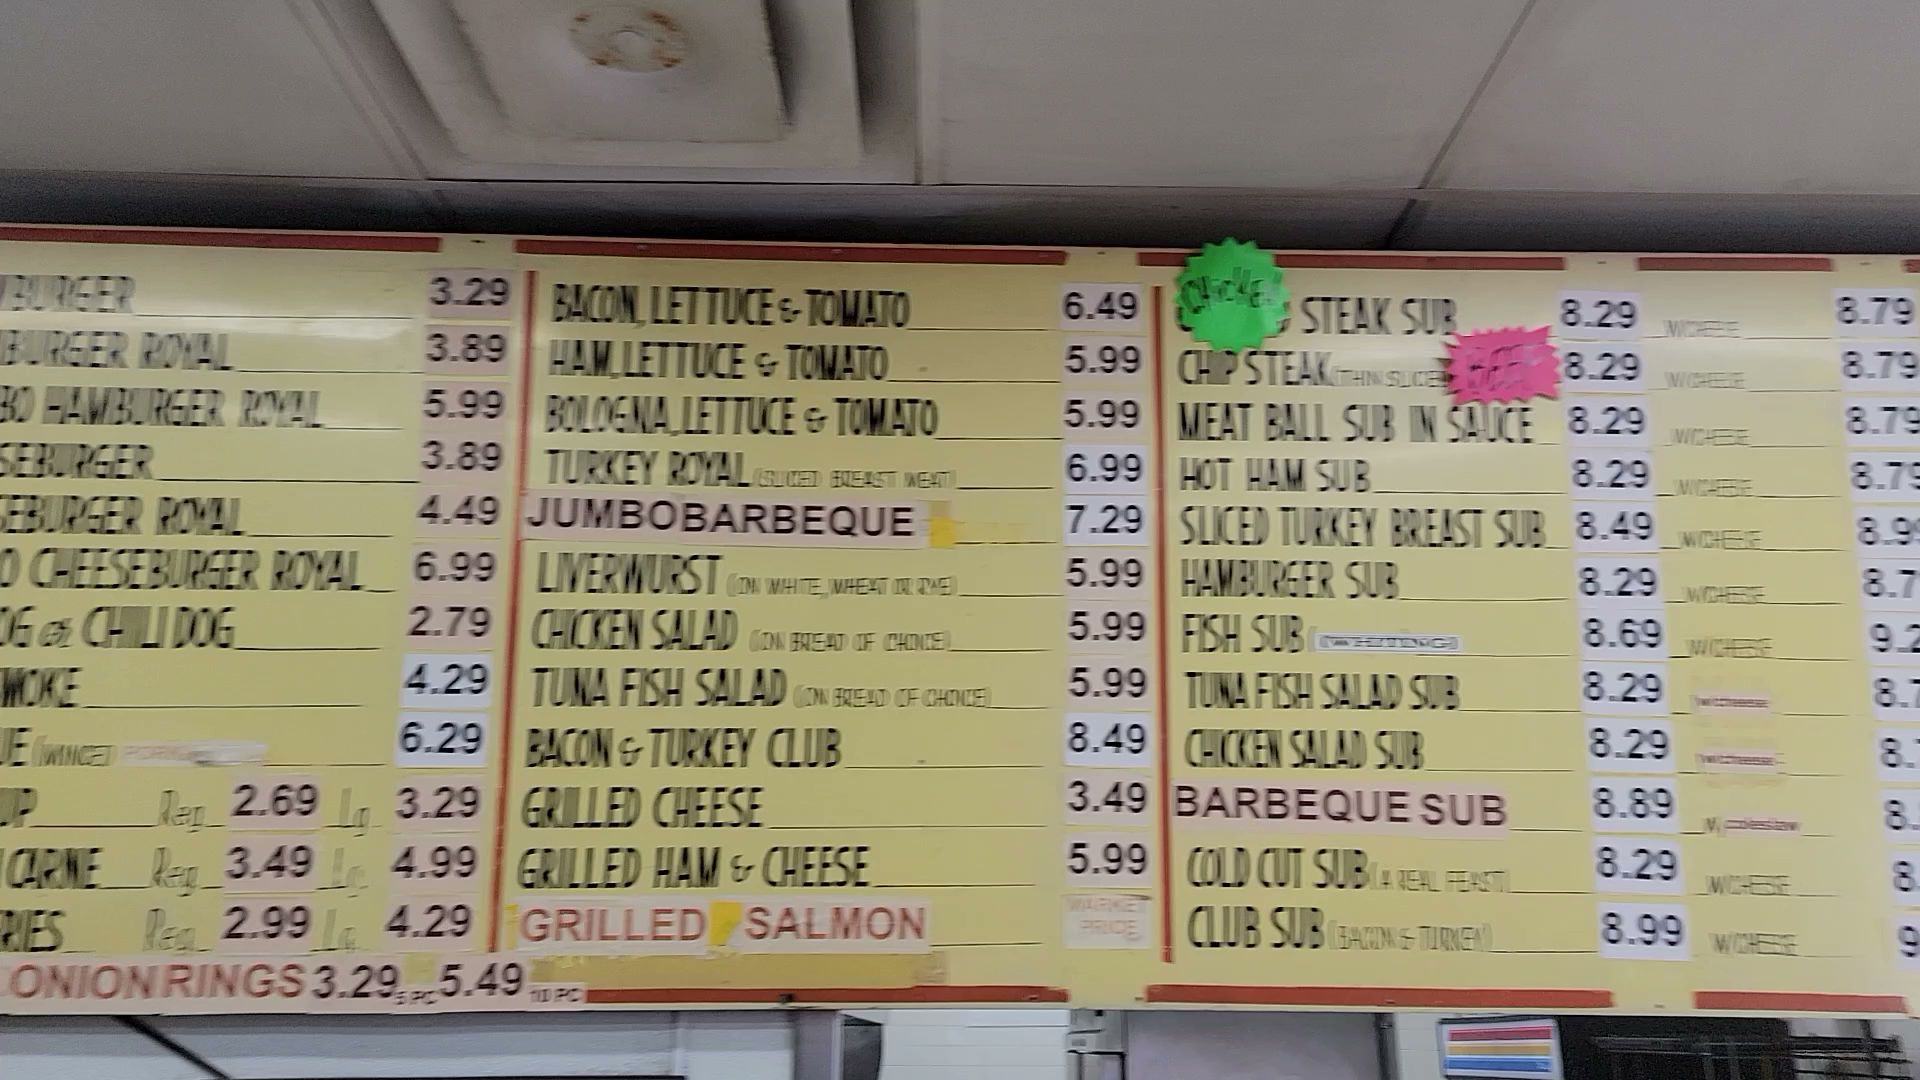 BURGER 3.29
BURGER ROYAL 3.89
BO HAMBURGER ROYAL 5.99
SEBURGER 3.89
SEBURGER ROYAL 4.49
O CHEESEBURGER ROYAL 6.99
OG or CHILI DOG 2.79
SMOKE 4.29
UE (MINCED) PORK 6.29
UP Reg. 2.69 Lg. 3.29
CARNE Reg. 3.49 Lg. 4.99
RIES Reg. 2.99 Lg. 4.29
ONION RINGS 3.29 5 PC 5.49 10 PC
BACON, LETTUCE & TOMATO 6.49
HAM, LETTUCE & TOMATO 5.99
BOLOGNA, LETTUCE & TOMATO 5.99
TURKEY ROYAL (SLICED BREAST MEAT) 6.99
JUMBO BARBEQUE 7.29
LIVERWURST (ON WHITE, WHEAT OR RYE) 5.99
CHICKEN SALAD (ON BREAD OF CHOICE) 5.99
TUNA FISH SALAD (ON BREAD OF CHOICE) 5.99
BACON & TURKEY CLUB 8.49
GRILLED CHEESE 3.49
GRILLED HAM & CHEESE 5.99
GRILLED SALMON MARKET PRICE
CHICKEN STEAK SUB 8.29 W/CHEESE 8.79
CHIP STEAK (THIN SLICED BEEF 8.29 W/CHEESE 8.79
MEAT BALL SUB IN SAUCE 8.29 W/CHEESE 8.79
HOT HAM SUB 8.29 W/CHEESE 8.79
SLICED TURKEY BREAST SUB 8.49 W/CHEESE 8.9
HAMBURGER SUB 8.29 W/CHEESE 8.7
FISH SUB (WHITING) 8.69 W/CHEESE 9.2
TUNA FISH SALAD SUB 8.29 w/cheese 8.7
CHICKEN SALAD SUB 8.29 w/cheese 8.
BARBEQUE SUB 8.89 w/coleslaw 8.
COLD CUT SUB (A REAL FEAST) 8.29 W/CHEESE 8.
CLUB SUB (BACON & TURKEY) 8.99 W/CHEESE 9